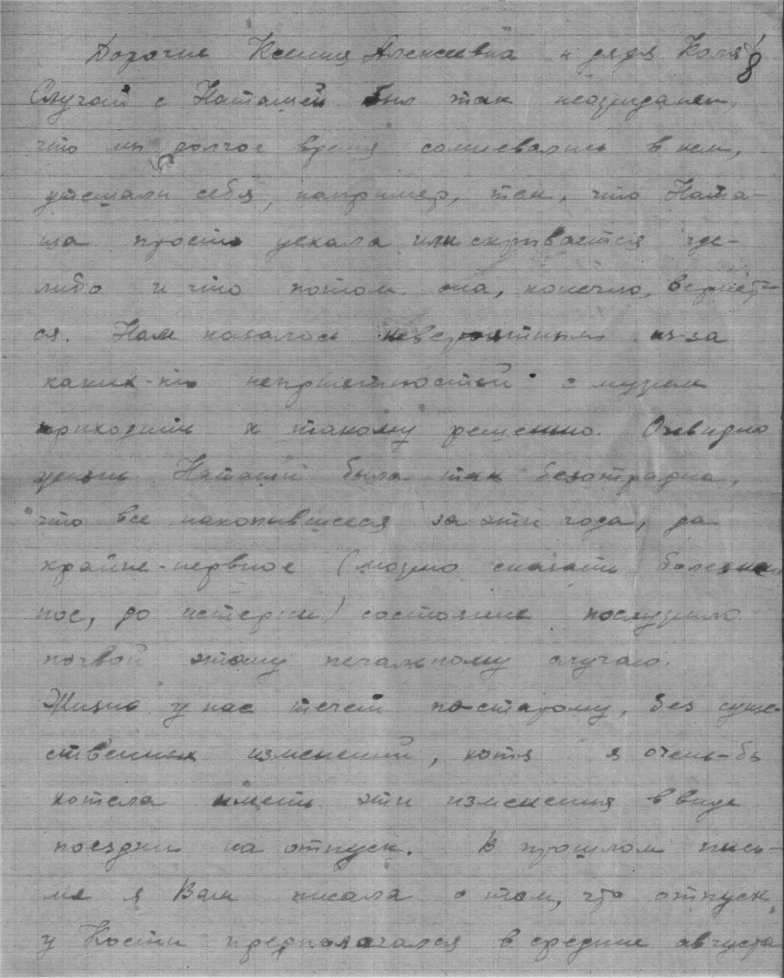 Дорогие Ксения Алексеевна и дядя Коля!
8
Случай с Наташей был так неожиданен,
что мы долгое время сомневались в нем,
утешали себя, например, тем, что Ната-
ша просто уехала или скрывается где-
либо и что потом она, конечно, вернет-
ся. Нам казалось невероятным из-за
каких-ниб неприятностей с мужем
приходить к такому решению. Очевидно
жизнь Наташи была так безотрадна,
что все накопившееся за эти года, да
крайне-нервное (можно сказать болезнен
ное, до истерки) состояние послужило
почвой этому печальному случаю.
Жизнь у нас течет постарому, без суще-
ственных изменений, хотя я очень-бы
хотела иметь эти изменения в виде
поездки на отпуск. В прошлом пись-
ме я Вам писала о том, что отпуск
у Кости предполагался в средине августа